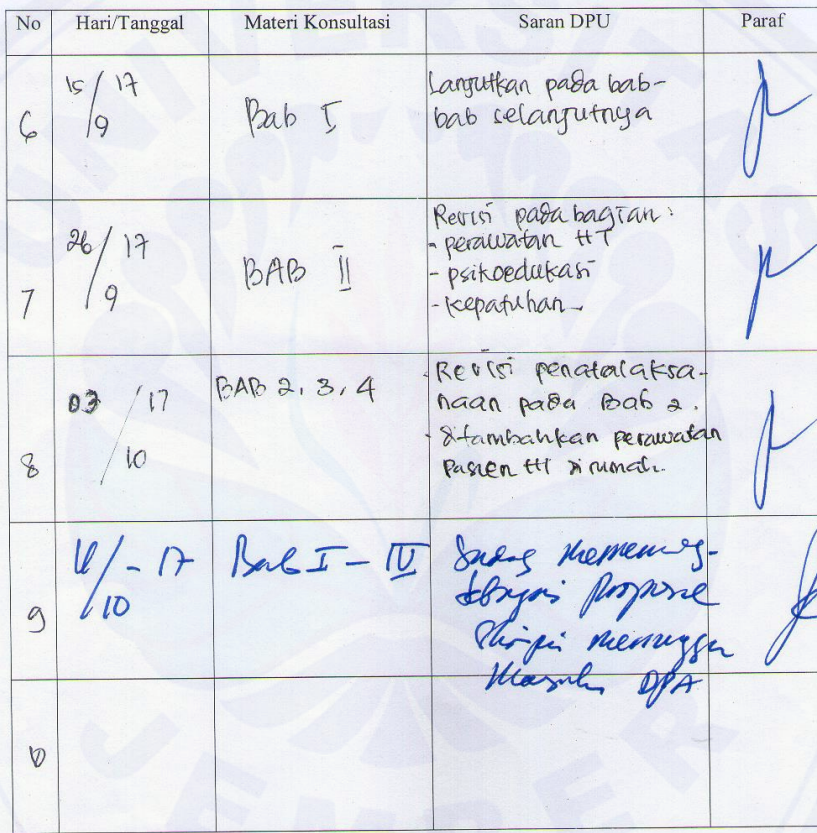 No Hari/Tanggal Materi Konsultasi Saran DPU Paraf
6 15/9 17 Bab I Lanjutkan pada bab-
bab selanjutnya
7 26/9 17 BAB II Revisi pada bagian:
- perawatan HT
- psikoedukasi
- kepatuhan
8 03/10 17 BAB 2, 3, 4 - Revisi penatalaksa-
naan pada Bab 2.
- ditambahkan perawatan
pasien HT di rumah.
9 /10 - 17 Bab I - IV
menunggu
DPA
UNIVERSITAS
JEMBER